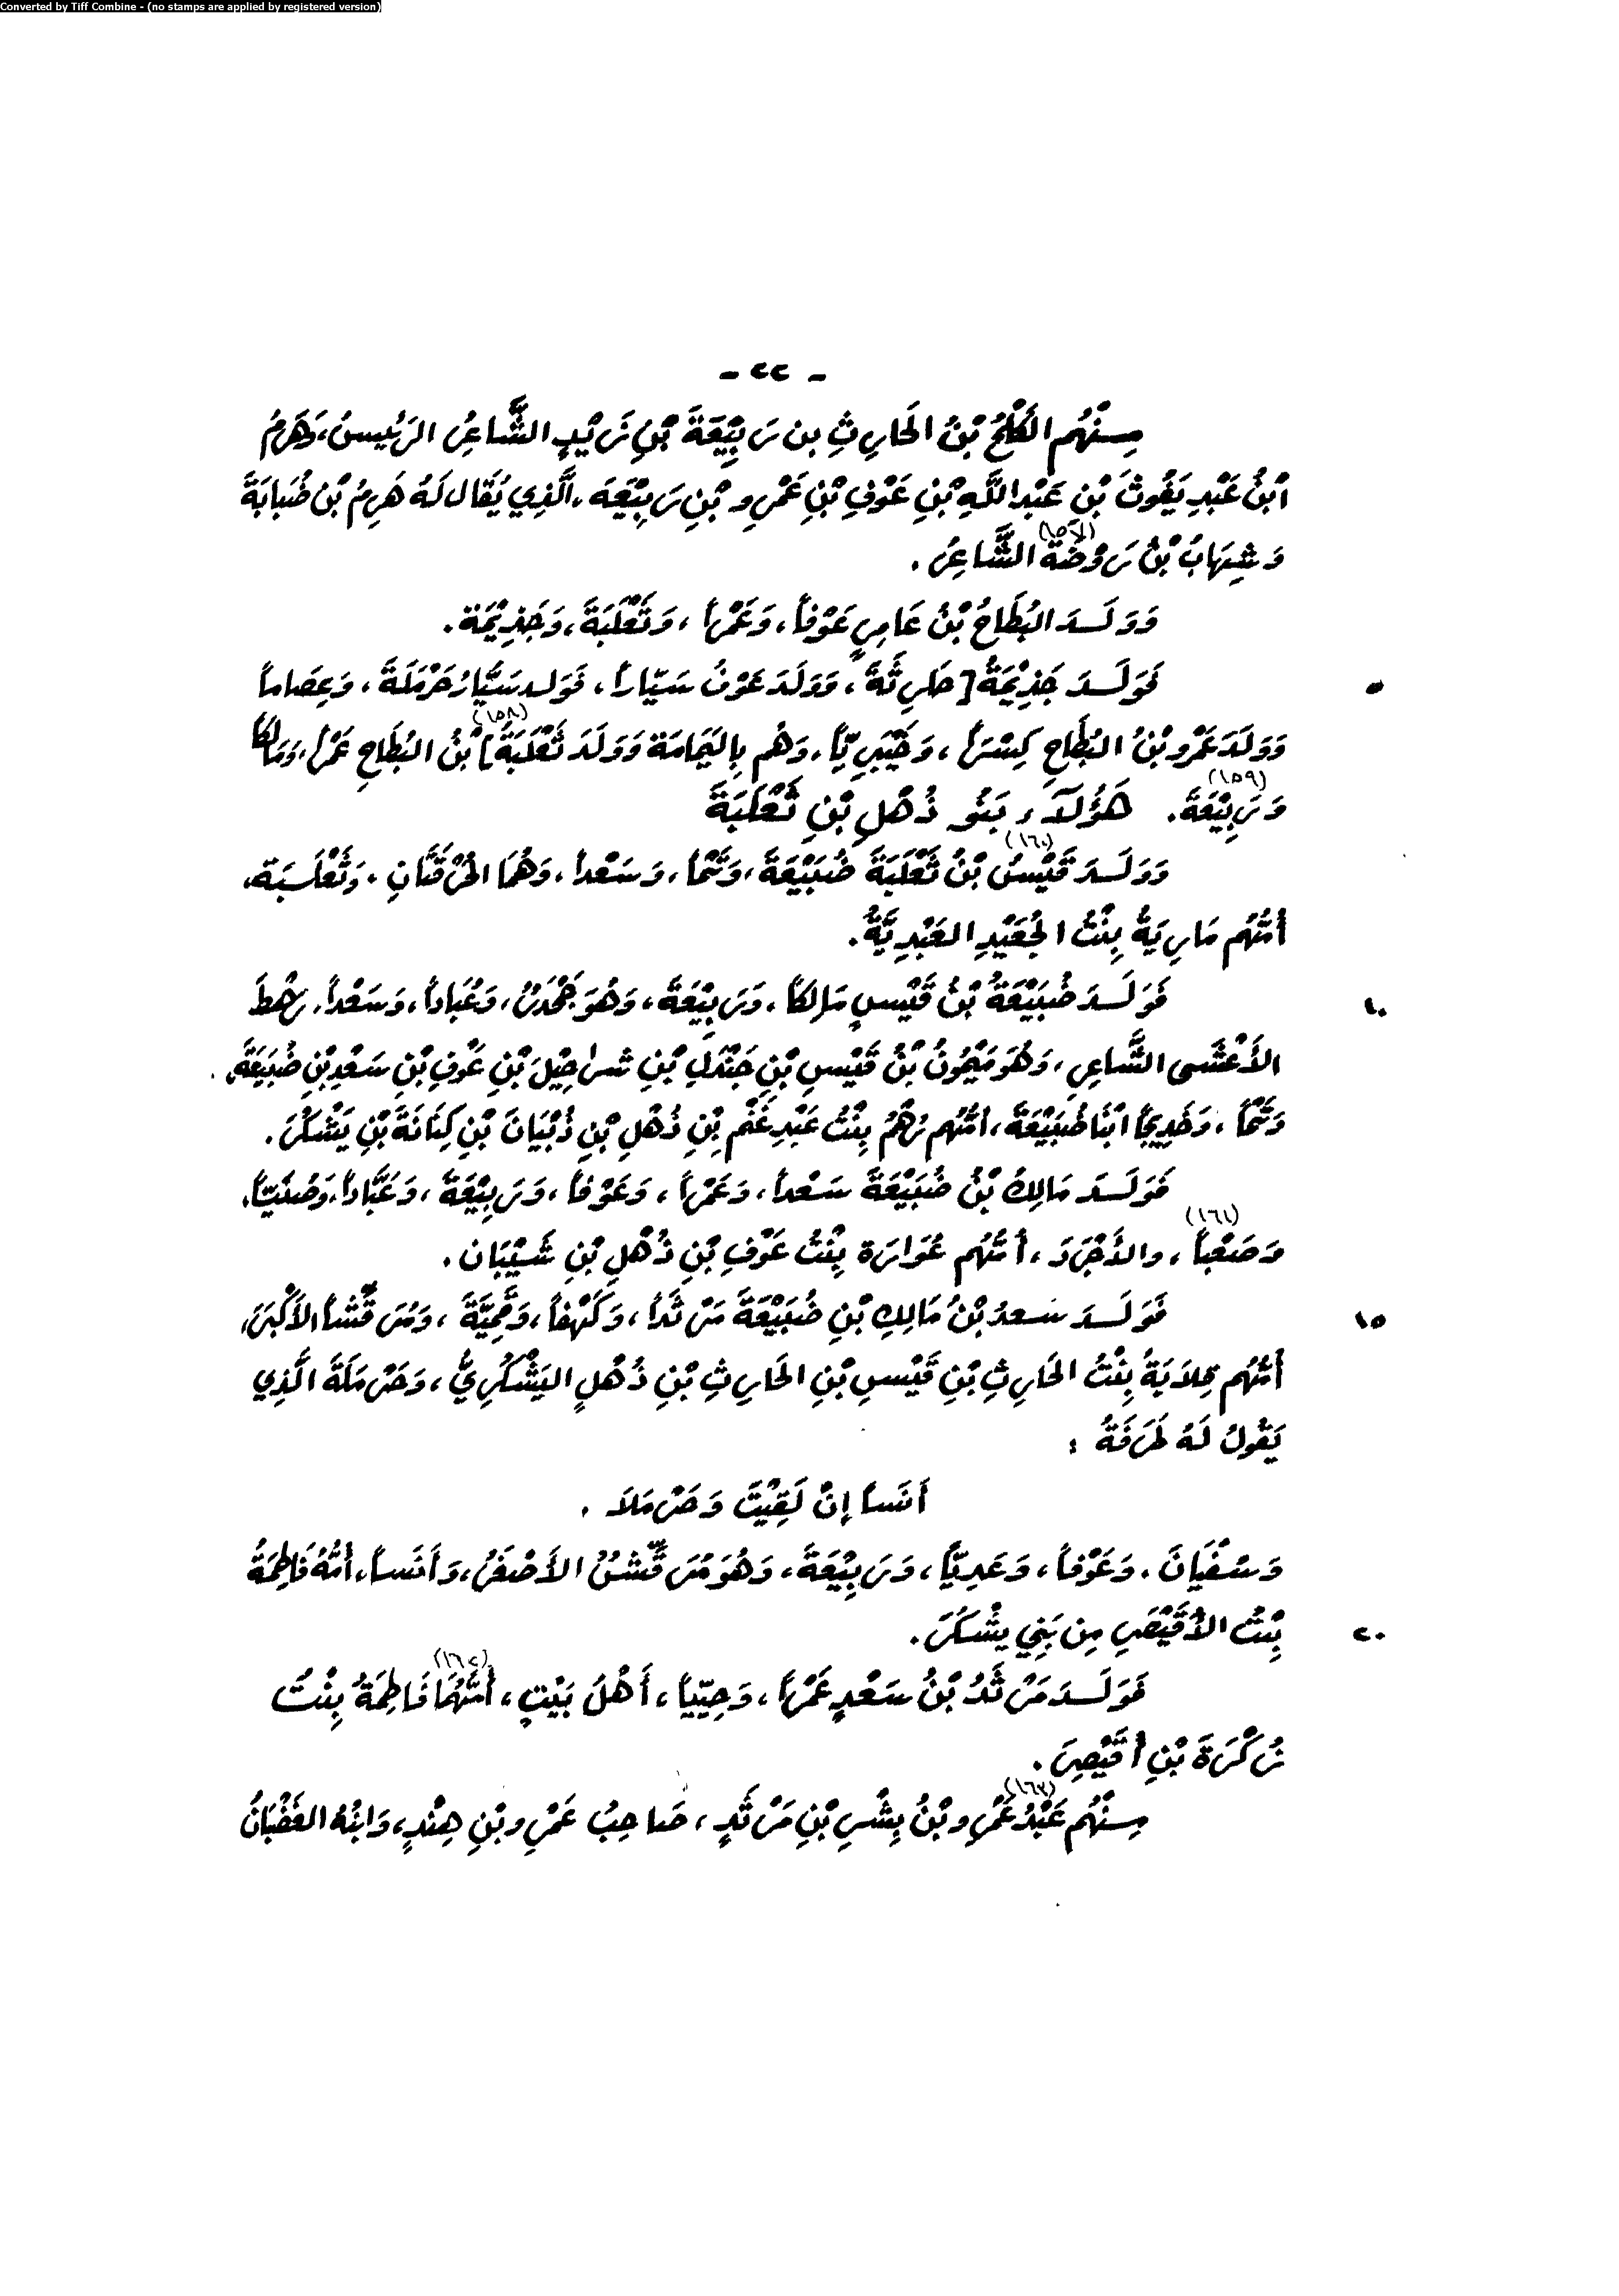 Converted by Tiff Combine - (no stamps are applied by registered version)
- ٢٢ -
مِنْهُم الكَلْحُ بْنُ الحَارِثِ بن رَبِيْعَةَ بْنِ زَيْدٍ الشَّاعِرُ الرَئيسُ، وَهَرِمُ
ابْنُ عَبْدِ يَغُوثَ بْنِ عَبْدِاللَّهِ بْنِ عَوْفِ بْنِ عَمْرِو بْنِ رَبِيْعَةَ، الَّذِي يُقَال لَهُ هَرِمُ بْن ضَبَابَةَ
وَشِهَابُ بْنُ رَوْضَةَ (١٥٧) الشَّاعِرُ.
وَوَلَدَ البُطَاحُ بْنُ عَامِرٍ عَوْفاً، وَعَمْراً، وَثَعْلَبَةَ، وَجَذِيْمَةَ.
٥ فَوَلَدَ جَذِيْمَةُ [حَارِثَةَ، وَوَلَدَ عَوْفُ سَيّاراً، فَوَلد سَيَّارُ حَرْمَلَةَ، وَعِصَاماً
وَوَلَدَ عَمْرو بْنُ البُطَاحِ كِسْرَاً، وَخَيْبَرِيّاً، وَهُم بِاليَمَامَة وَوَلَدَ ثَعْلَبَةُ] (١٥٨) بْنُ البُطَاحِ عَمْراً، وَمَالِكاً
وَرَبِيْعَةَ. (١٥٩) هَؤُلَاَءِ بَنُو ذُهْلِ بْنِ ثَعْلَبَةَ
وَوَلَدَ قَيْسُ بْنُ ثَعْلَبَةَ (١٦٠) ضُبَيْعَةَ، وَتَيْماً، وَسَعْداً، وَهُمَا الحُرْقَتَانِ، وَثَعْلَبَة،
أُمُّهُم مَارِيَةُ بِنْتُ الجُعَيْدِ العَبْدِيَّةُ.
١٠ فَوَلَدَ ضُبَيْعَةُ بْنُ قَيْسٍ مَالِكاً، وَرَبِيْعَةَ، وَهُوَ جَحْدَرٌ، وَعُبَاداً، وَسَعْداً، رَهْطَ
الأَعْشَى الشَّاعِرِ، وَهُوَ مَيْمُونُ بْنُ قَيْسِ بْنِ جَنْدَلِ بْنِ شَرَاحِيْلَ بْنِ عَوْفِ بْنِ سَعْدِ بْنِ ضُبَيْعَةَ.
وَتَيْماً، وَخَدِيجاً ابْنَا ضُبَيْعَةَ، أُمُّهُم رُهْمُ بِنْتُ عَبْدِ غَنْمِ بْنِ ذُهْلِ بْنِ ذُبْيَانَ بْنِ كِنَانَةَ بْنِ يَشْكُرَ.
فَوَلَدَ مَالِكُ بْنُ ضُبَيْعَةَ سَعْداً، وَعَمْراً، وَعَوْفاً، وَرَبِيْعَةَ، وَعَبَّاداً، وَصُنَيّاً،
وَصَعْباً (١٦١)، والأَجْرَدَ، أُمُّهُم عُوَارَة بِنْتُ عَوْفِ بْنِ ذُهْلِ بْنِ شَيْبَان.
١٥ فَوَلَدَ سَعدُ بْنُ مَالِكِ بْنِ ضُبَيْعَةَ مَرْثَداً، وَكَهْفاً، وَقَمِيْئَةَ، وَمُرَقِّشاً الأَكْبَرَ،
أُمُّهُم قِلاَبَةُ بِنْتُ الحَارِثِ بْنِ قَيْسِ بْنِ الحَارِثِ بْنِ ذُهْلٍ اليَشْكُرِيُّ، وَحَرْمَلَةَ الَّذِي
يَقُولُ لَهُ طَرَفَةُ :
أَنَساً إِنْ لَقِيْتَ وَحَرْمَلاَ .
وَسُفْيَانَ، وَعَوْفاً، وَعَدِيّاً، وَرَبِيْعَةَ، وَهُوَ مُرَقِّشُ الأَصْغَرُ، وَأَنَساً، أُمُّهُ فَاطِمَةُ
٢٠ بِنْتُ الأُقَيْصِرِ مِن بَنِي يَشْكُرَ.
فَوَلَدَ مَرْثَدُ بْنُ سَعْدٍ عَمْراً، وَحِيّياً، أَهْلُ بَيْتٍ، أُمُّهُمَا (١٦٢) فَاطِمَةُ بِنْتُ
زُكْرَةَ بْنِ أُقَيْصِرَ.
مِنْهُم عَبْدُ عَمْرِو (١٦٣) بْنُ بِشْرِ بْنِ مَرْثَدٍ، صَاحِبُ عَمْرِو بْنِ هِنْدٍ، وَابْنُهُ الغَضْبَانُ